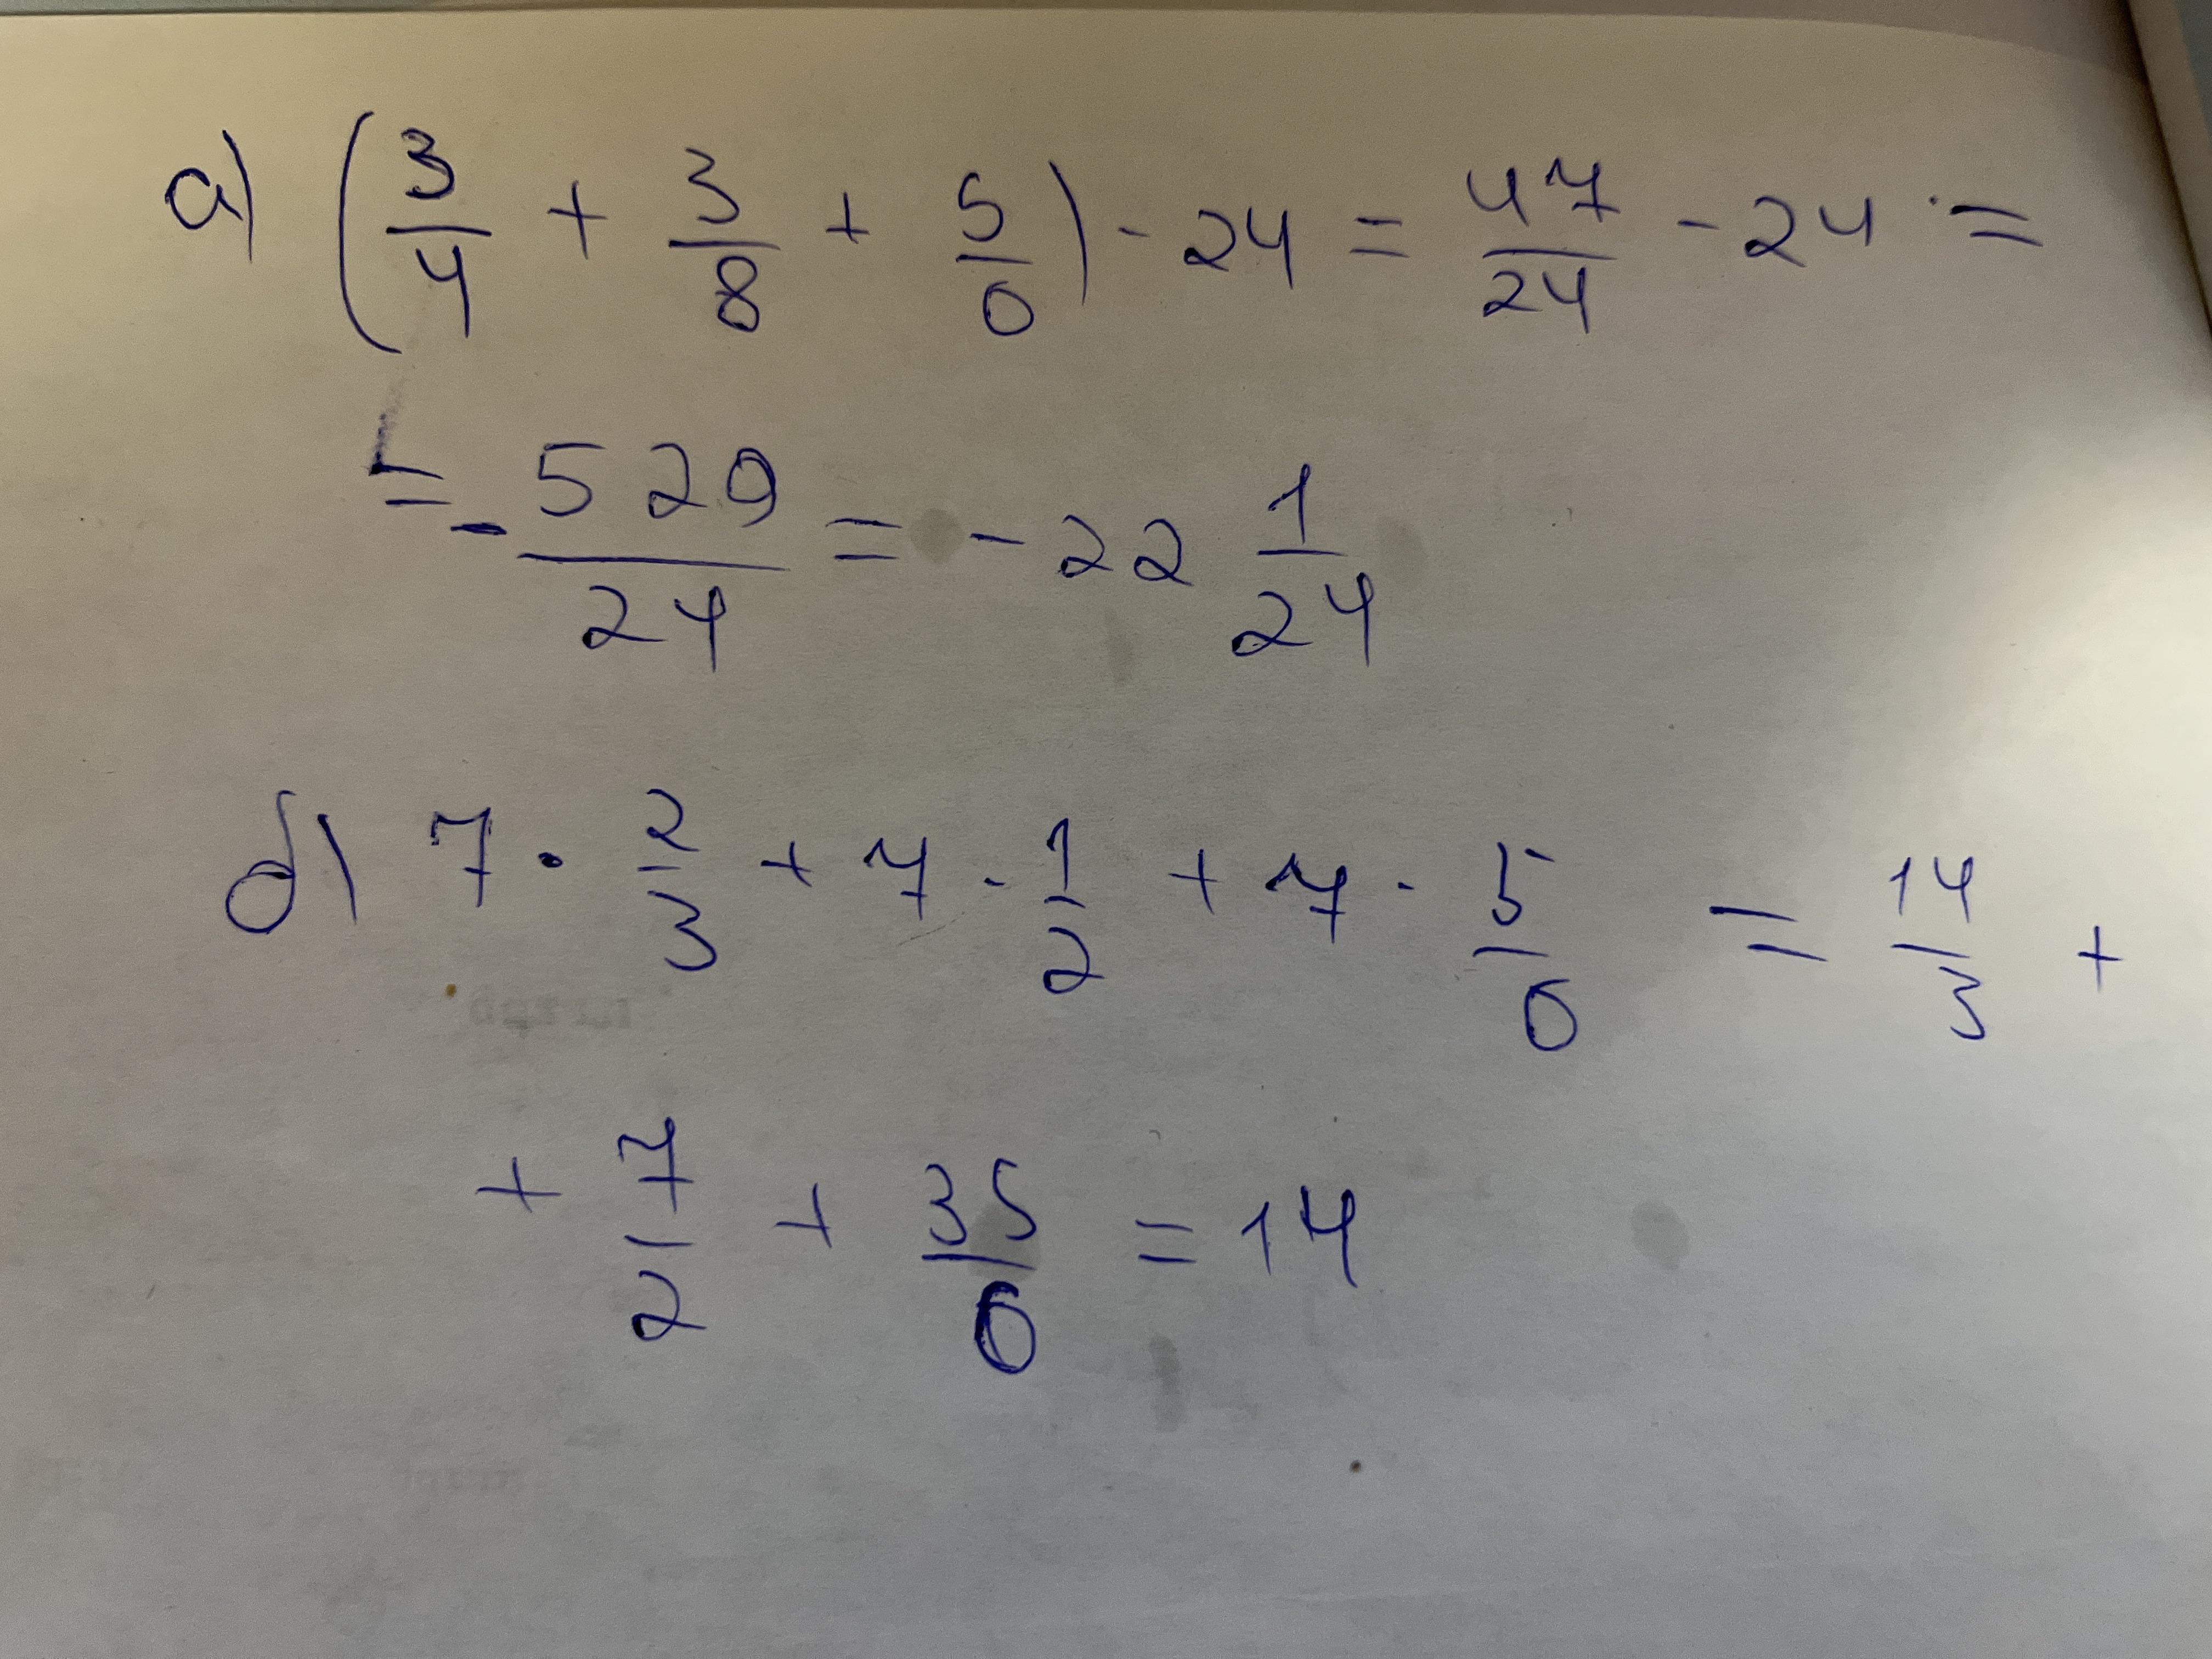 а) (3/4 + 3/8 + 5/6) - 24 = 47/24 - 24 =
= - 529/24 = - 22 1/24
б) 7 · 2/3 + 7 · 1/2 + 7 · 5/6 = 14/3 +
+ 7/2 + 35/6 = 14